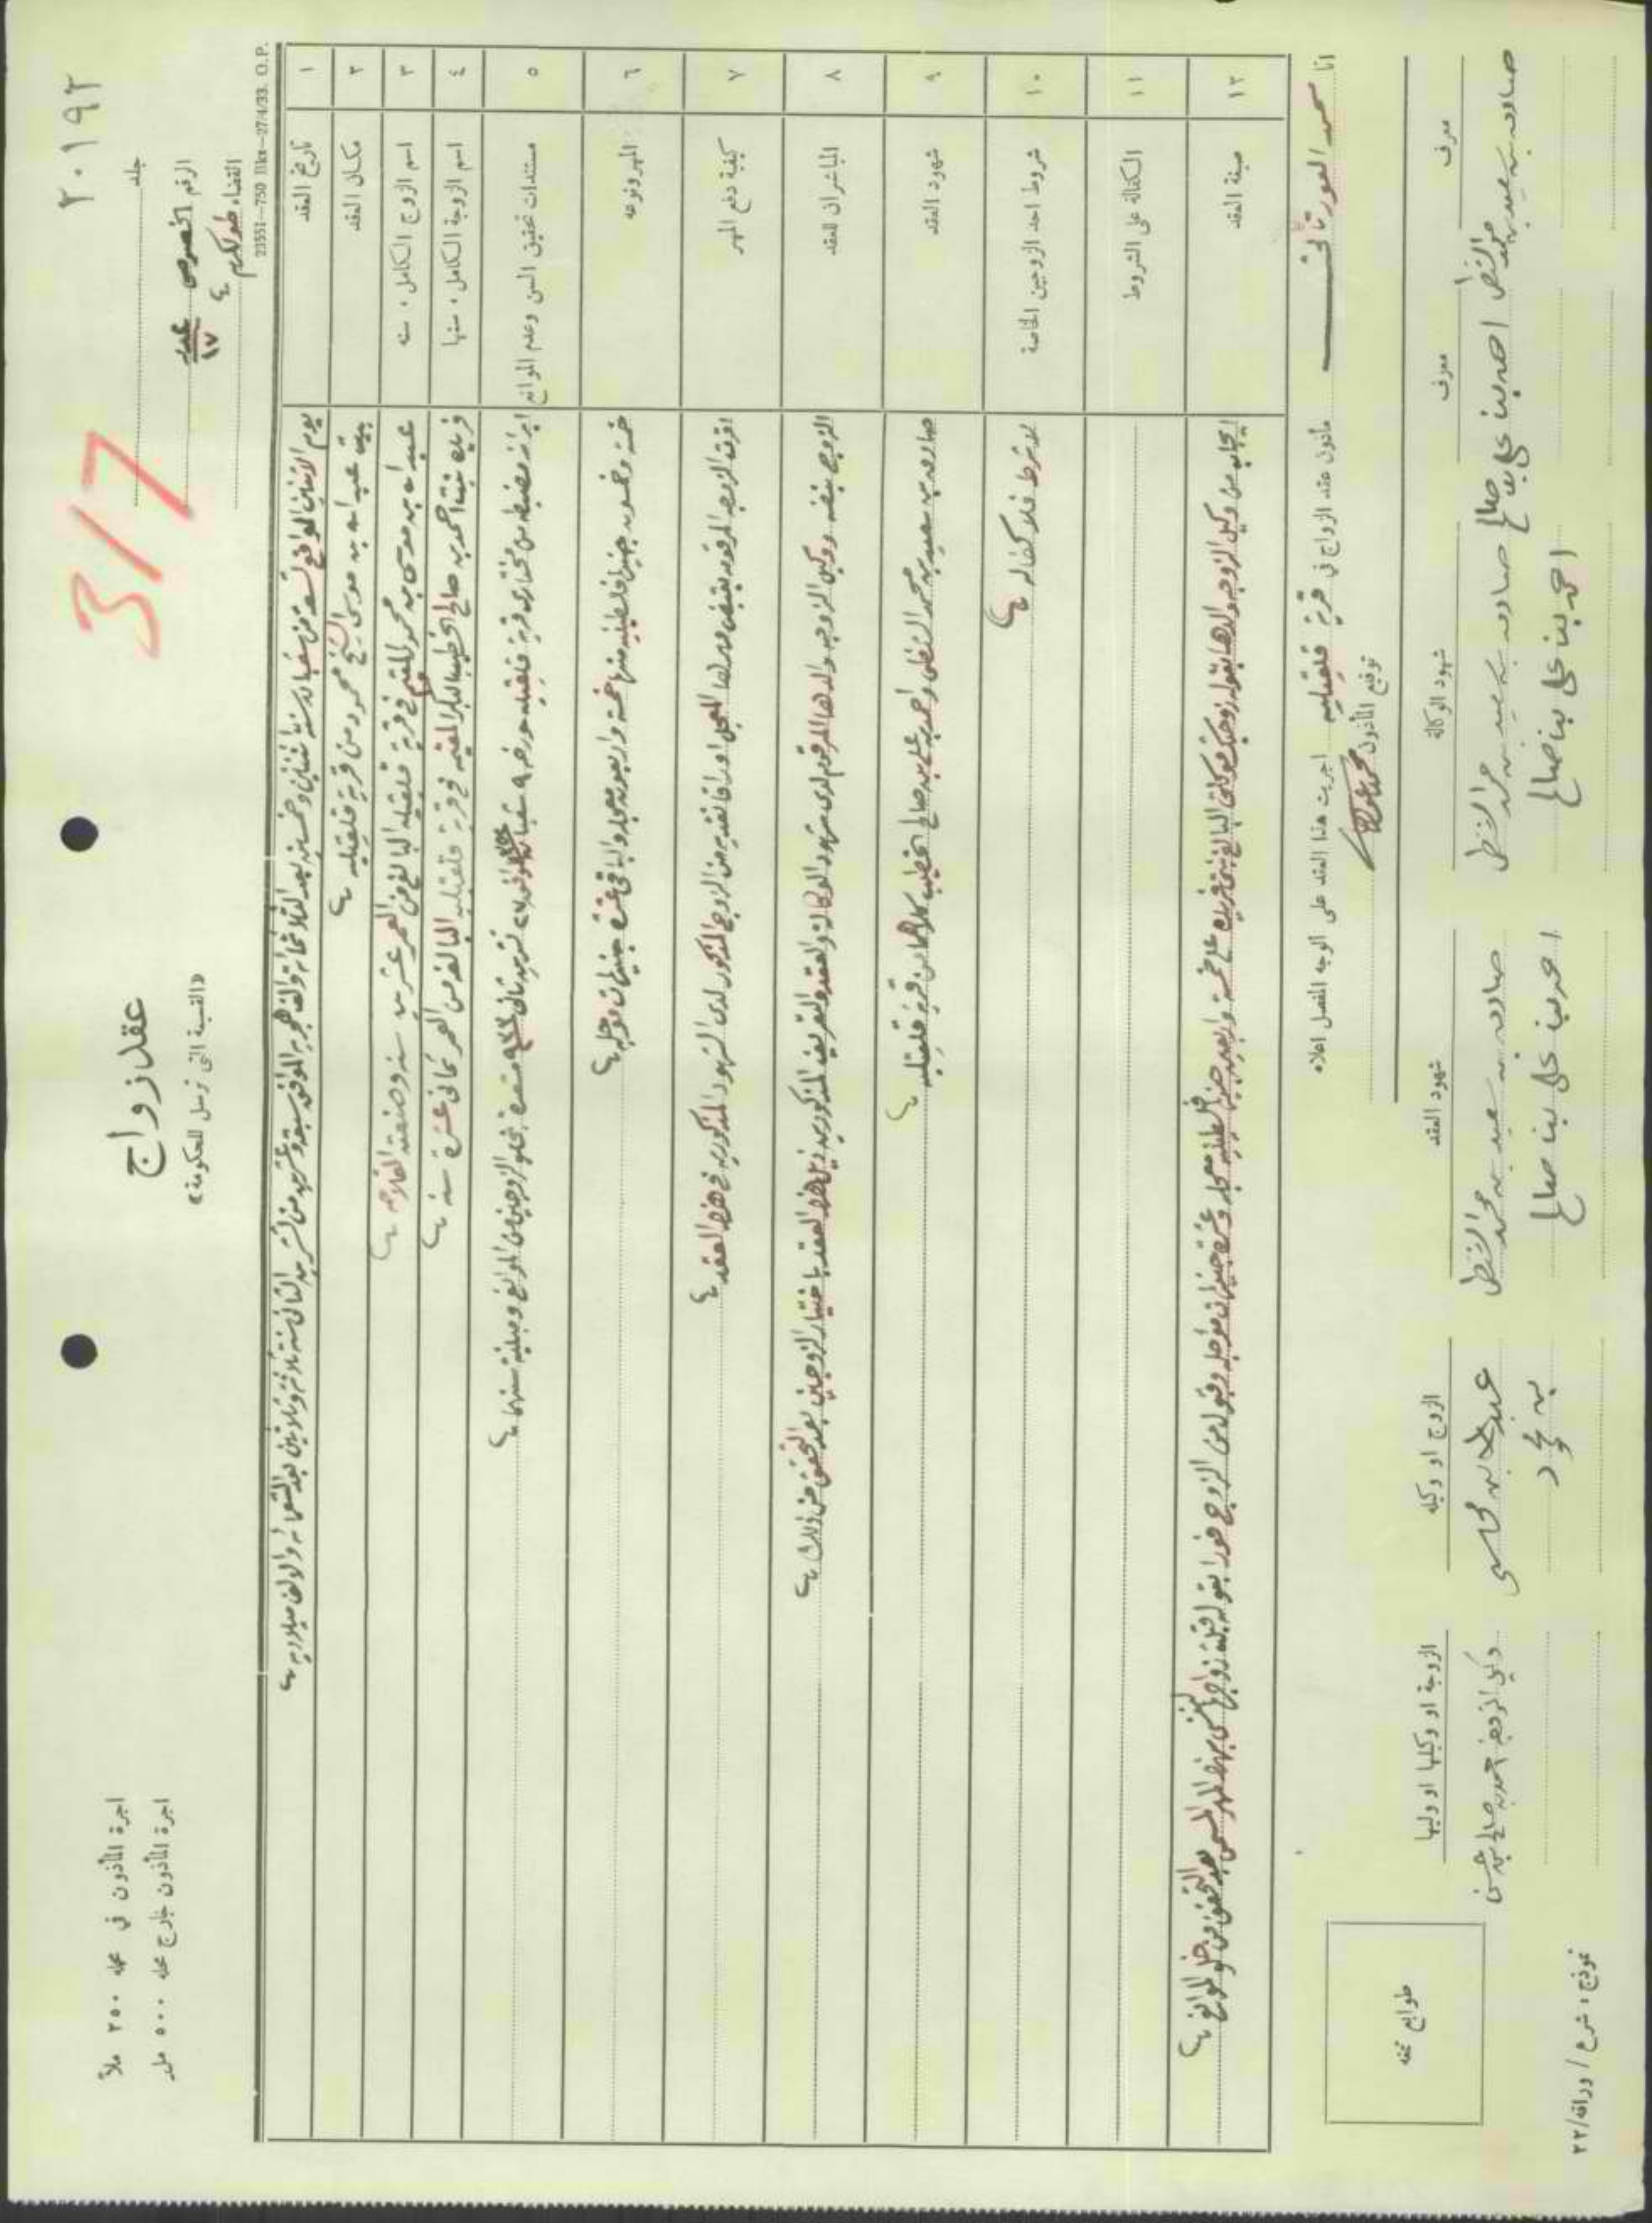 ٢٠١٩٢
3/7
عقد زواج
«القسيمة التي ترسل للحكومة»
جلد
الرقم الخصوصي
١٧
القضاء طولكرم
اجرة المأذون في محله ٢٥٠ ملاً
اجرة المأذون خارج محله ٥٠٠ مل
23551—750 Bks—27/4/33. O.P.
١ تاريخ العقد يوم الاثنين الواقع تسعة من شعبان سنة اثنتين وخمسين بعد الثلاثمائة والف هجرية الموافق سبعة وعشرين من تشرين الثاني سنة ثلاثة وثلاثين بعد التسعمائة والالف ميلادية
٢ مكان العقد بيت عبد الله بن موسى الشيخ محمود من قرية قلقيلية
٣ اسم الزوج الكامل . سنه عبد الله بن موسى بن محمود المقيم في قرية قلقيلية البالغ من العمر عشرين سنة وصنعته الفلاحه
٤ اسم الزوجة الكامل . سنها بنت احمد بن صالح الخطيب البكر المقيمه في قرية قلقيليه البالغه من العمر ثماني عشرة سنه
٥ مستندات تحقيق السن وعدم الموانع ابراز مضبطه من مختاري قرية قلقيليه مورخه ٩ شعبان تشرين ثاني بخلو الزوجين من الموانع ومبلية سنهما
٦ المهر ونوعه خمسة وخمسون جنيها فلسطينيه منها خمسة واربعون معجله والباقي عشرة جنيهات مؤجله
٧ كيفية دفع المهر اقرت الزوجه المرقومه بقبض مهرها المعجل اوراقا نقديه من الزوج المذكور لدى الشهود المذكورين في هذا العقد
٨ المباشران للعقد الزوج بنفسه ووكيل الزوجه والدها المرقوم لدى شهود الوكالة والعقد والتعريف المذكورين ذيل هذا العقد باختيار الزوجين بعد التحقق من ذلك
٩ شهود العقد صادق بن سعيد بن محمد النفطي واحمد بن علي بن صالح الخطيب كلاهما من قرية قلقيليه
١٠ شروط احد الزوجين الخاصة لا شرط فلا كفاله
١١ الكفالة على الشروط
١٢ صيغة العقد ايجاب من وكيل الزوجه والدها بقوله زوجتك موكلتي البالغ بنتي على خمسة واربعين جنيها فلسطينيه معجله وعشرة جنيهات مؤجله وقبول من الزوج فورا بقوله قبلت زواجها لنفسي بهذا المهر المسمى بعد التحقق من خلو الموانع
انا مأذون عقد الزواج في قرية قلقيليه اجريت هذا العقد على الوجه المفصل اعلاه
توقيع المأذون
معرف
معرف
شهود الوكالة
شهود العقد
الزوج او وكيله
الزوجة او وكيلها او وليها
احمد بن علي بن صالح
صادق بن سعيد بن محمد
احمد بن علي بن صالح
صادق بن سعيد بن محمد
احمد بن علي بن صالح
وكيل الزوجة احمد بن صالح
طوابع تمغه
نموذج: شرع / وراقه / ٢٢